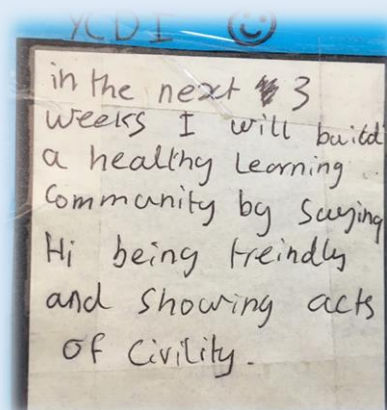 YCDI
in the next 3
weeks I will build
a healthy Learning
Community by Saying
Hi being freindly
and Showing acts
of Civility.